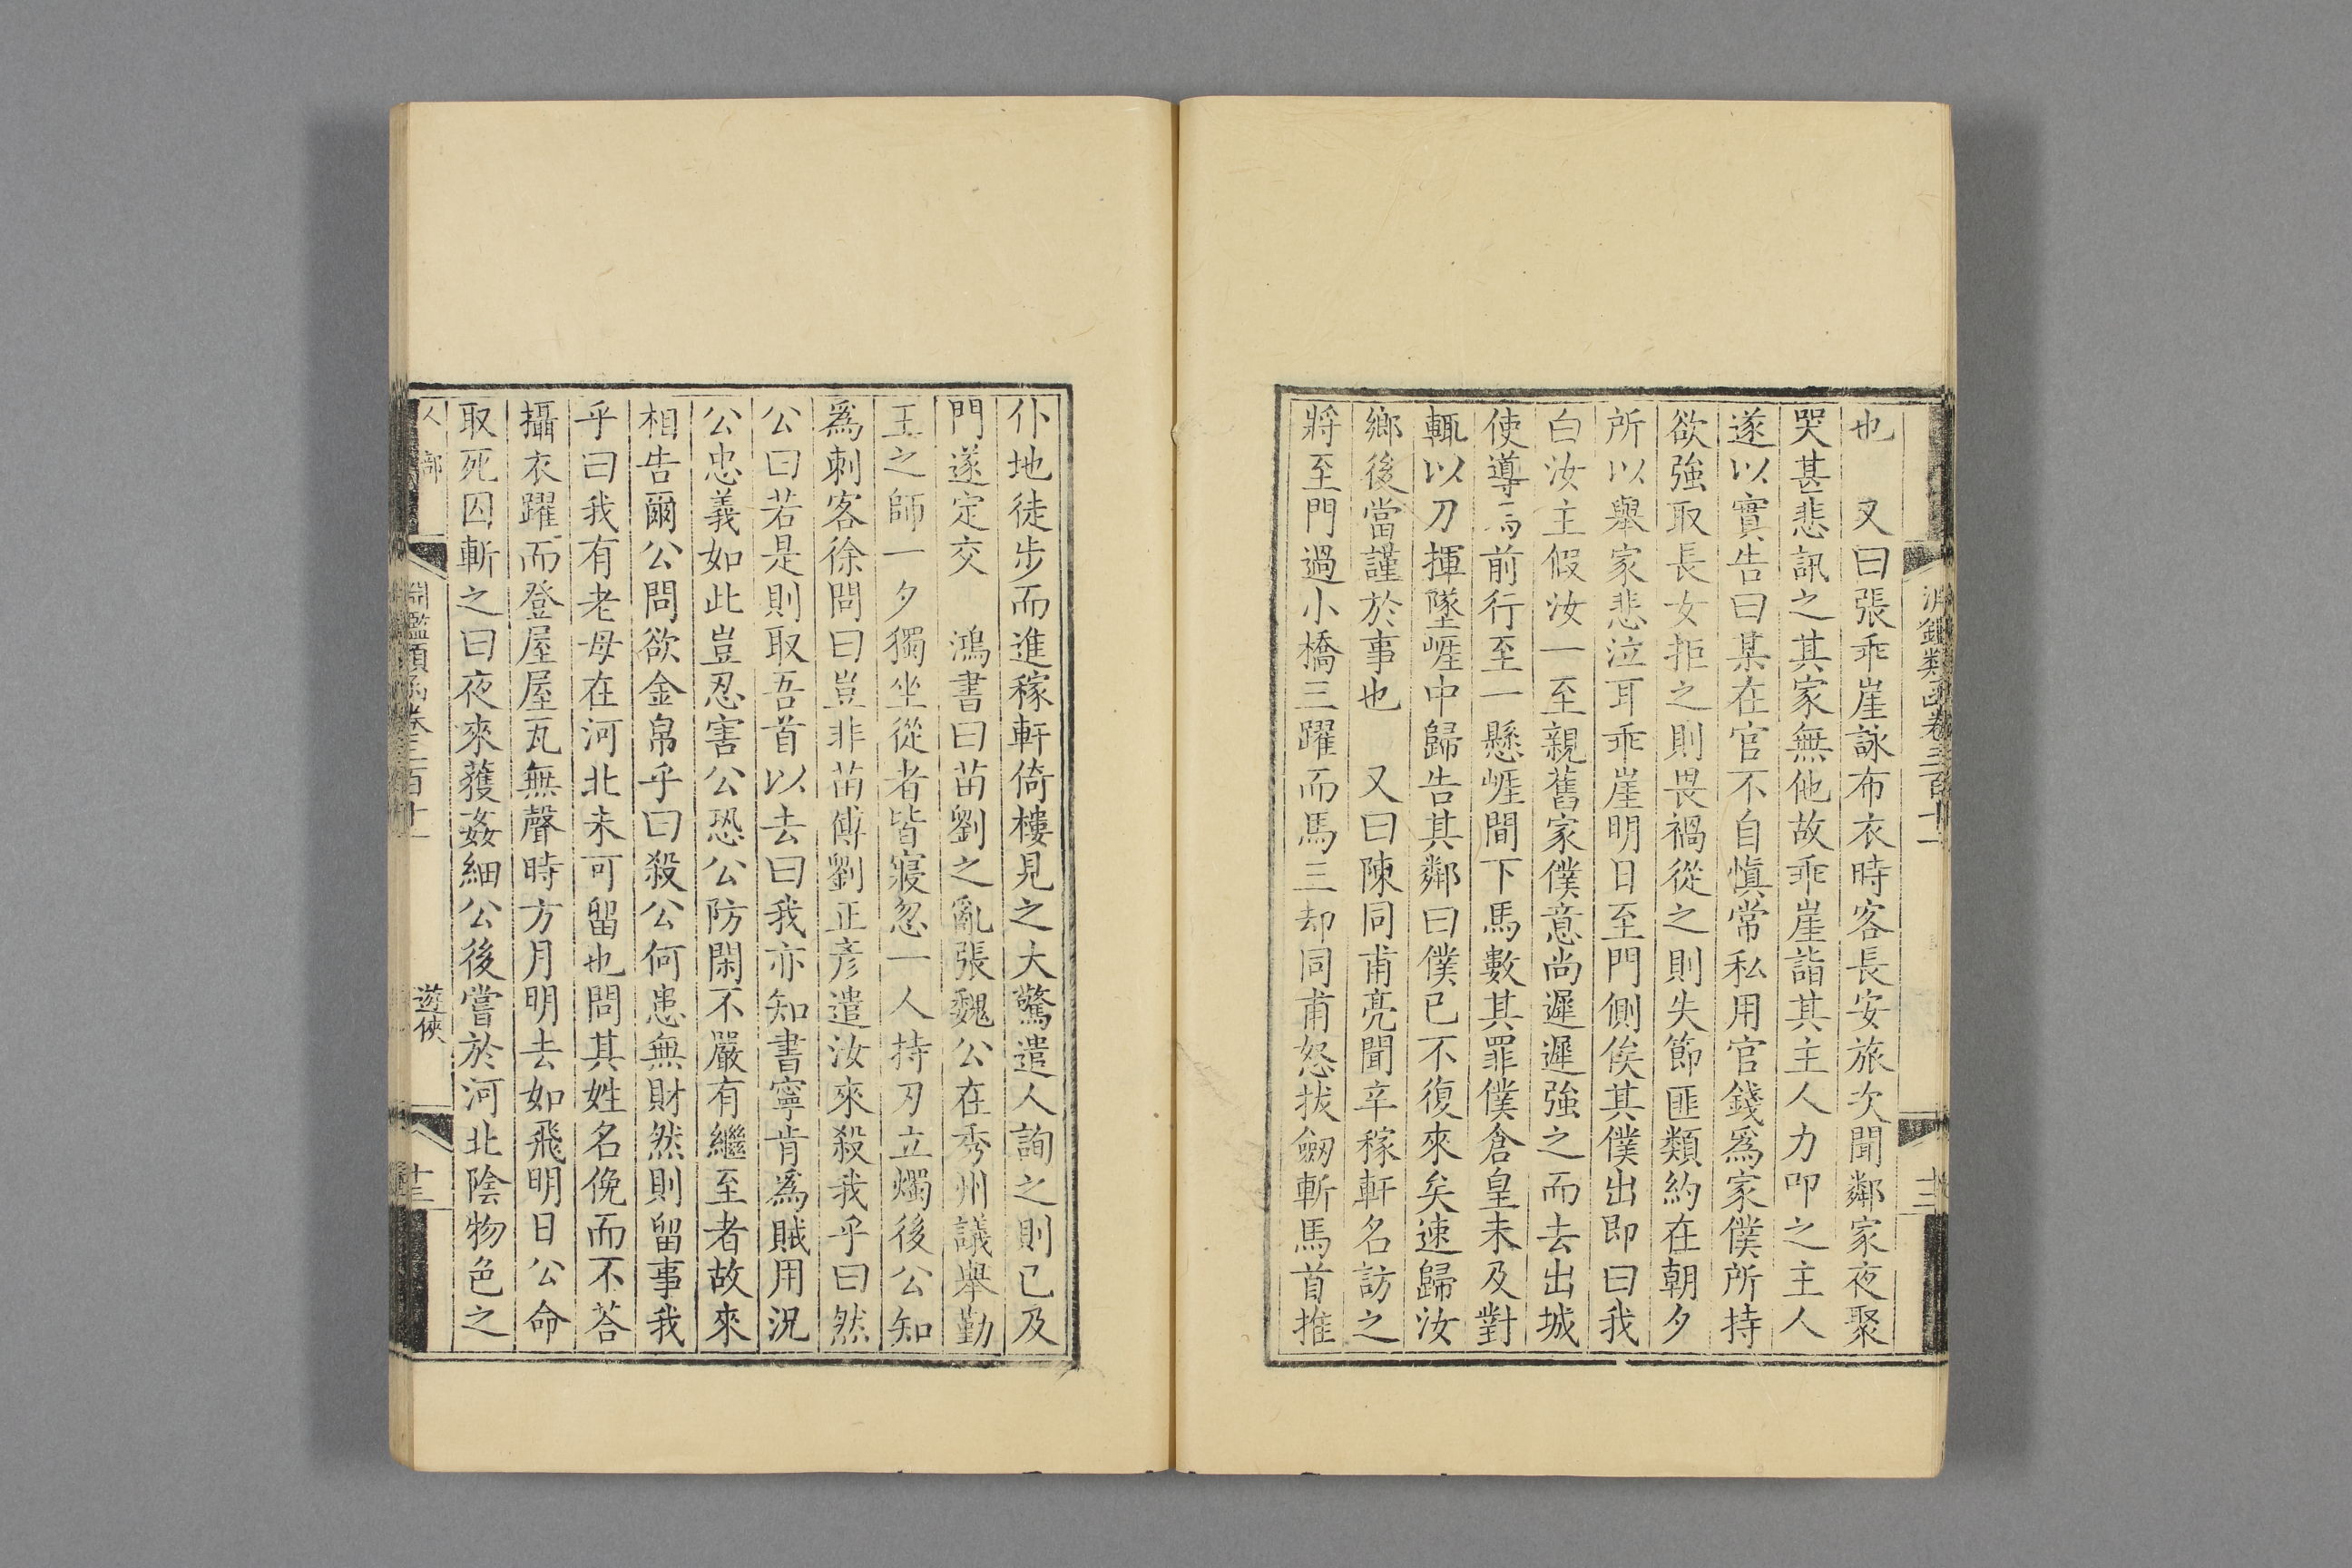 淵鑑類函卷三百十一
十三
也　又曰張乖崖詠布衣時客長安旅次聞鄰家夜聚
哭甚悲訊之其家無他故乖崖詣其主人力叩之主人
遂以實告曰某在官不自慎常私用官錢爲家僕所持
欲強取長女拒之則畏禍從之則失節匪類約在朝夕
所以舉家悲泣耳乖崖明日至門側俟其僕出即曰我
白汝主假汝一至親舊家僕意尚遲遲強之而去出城
使導馬前行至一懸崕間下馬數其罪僕倉皇未及對
輒以刀揮墜崕中歸告其鄰曰僕已不復來矣速歸汝
鄉後當謹於事也　又曰陳同甫亮聞辛稼軒名訪之
將至門過小橋三躍而馬三却同甫怒拔劒斬馬首推
仆地徒步而進稼軒倚樓見之大驚遣人詢之則已及
門遂定交　鴻書曰苗劉之亂張魏公在秀州議舉勤
王之師一夕獨坐從者皆寢忽一人持刃立燭後公知
爲刺客徐問曰豈非苗傅劉正彥遣汝來殺我乎曰然
公曰若是則取吾首以去曰我亦知書寧肯爲賊用況
公忠義如此豈忍害公恐公防閑不嚴有繼至者故來
相告爾公問欲金帛乎曰殺公何患無財然則留事我
乎曰我有老母在河北未可留也問其姓名俛而不荅
攝衣躍而登屋屋瓦無聲時方月明去如飛明日公命
取死囚斬之曰夜來獲姦細公後嘗於河北陰物色之
人部
淵鑑類函卷三百十一
遊俠
十三